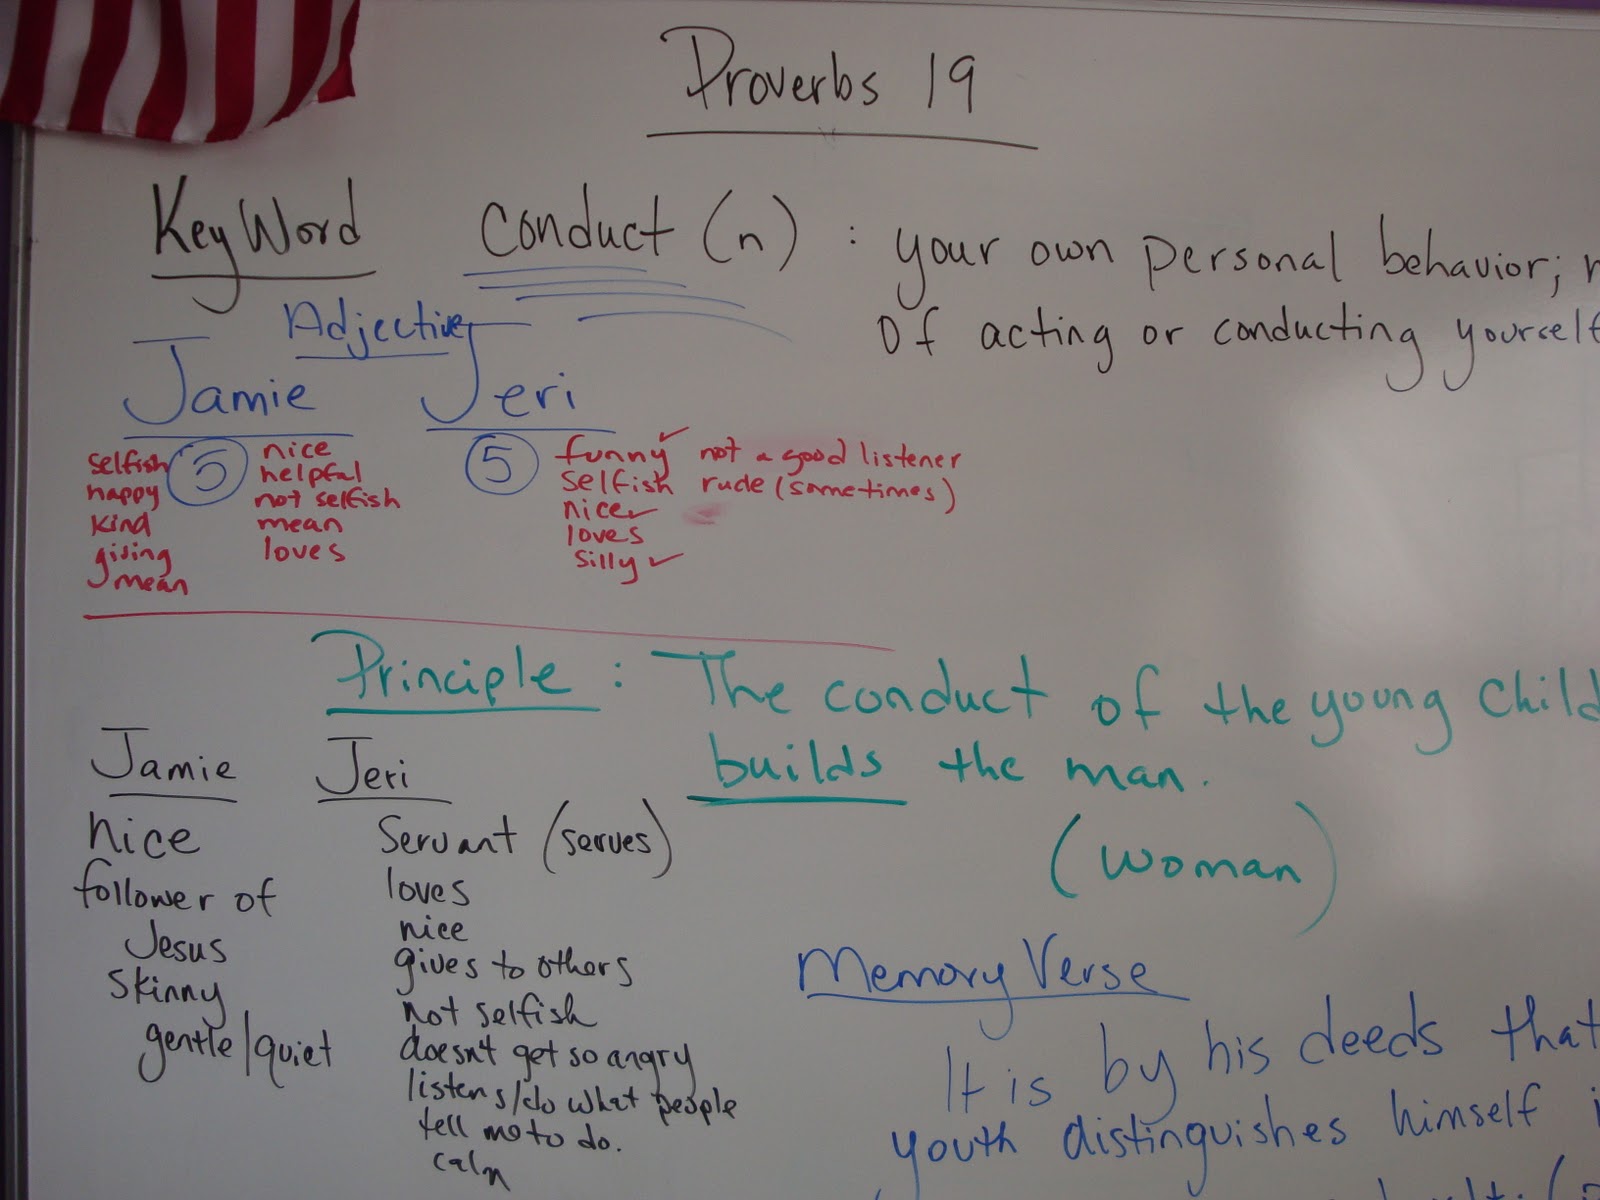 Proverbs 19
Key Word Conduct (n) : your own personal behavior;
of acting or conducting yourself
Adjective
Jamie Jeri
5
selfish
happy
kind
giving
mean
nice
helpful
not selfish
mean
loves
5
funny ✓
selfish
nice ✓
loves
silly ✓
not a good listener
rude (sometimes)
Principle : The conduct of the young child
builds the man.
(woman)
Jamie
nice
follower of
Jesus
skinny
gentle/quiet
Jeri
Servant (serves)
loves
nice
gives to others
not selfish
doesn't get so angry
listens/do what people
tell me to do.
calm
Memory Verse
It is by his deeds that
youth distinguishes himself